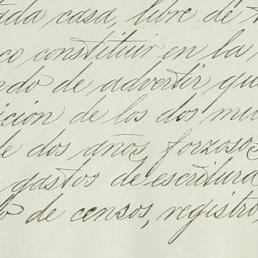 tada casa, libre de
co constituir en la
ndo de advertir que
ición de los dos mu
e dos años forzosos
gastos de escritura
o de censos, registro,